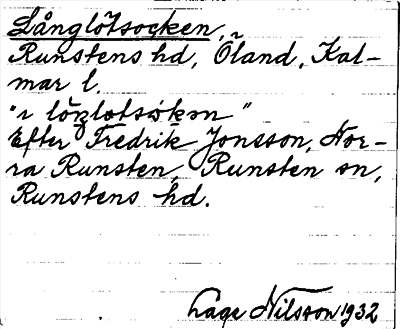 Långlötsocken,
Runstens hd, Öland, Kal-
mar l.
"ı löŋlotsòkən"
Efter Fredrik Jonsson, Nor-
ra Runsten, Runsten sn,
Runstens hd.
Lage Nilsson 1932